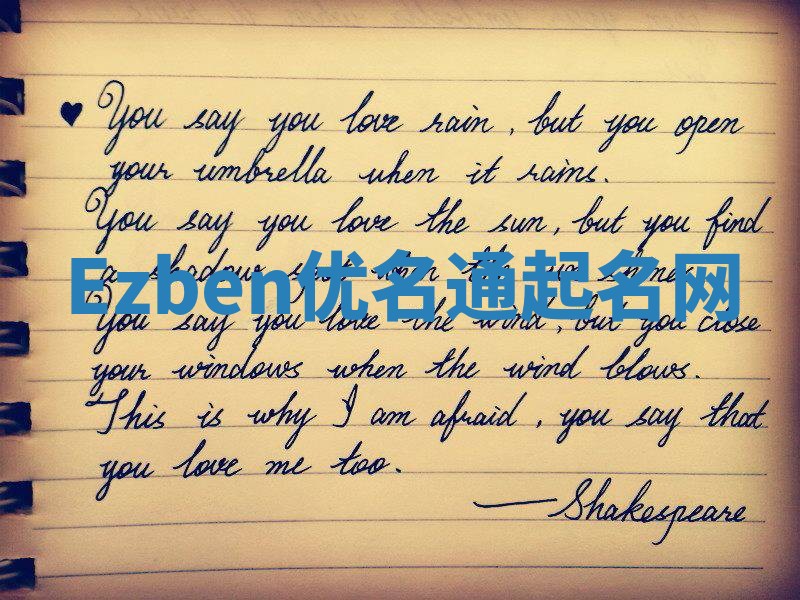 ♥ You say you love rain, but you open
your umbrella when it rains.
You say you love the sun, but you find
a shadow spot when the sun shines.
Ezben优名通起名网
You say you love the wind, but you close
your windows when the wind blows.
This is why I am afraid, you say that
you love me too.
—Shakespeare